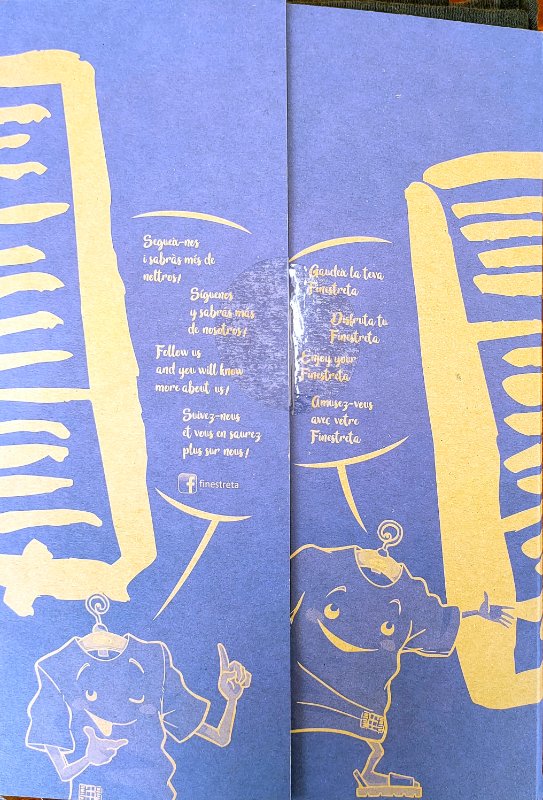 Segueix-nos
i sabràs més de
noltros!
Síguenos
y sabrás más
de nosotros!
Follow us
and you will know
more about us!
Suivez-nous
et vous en saurez
plus sur nous!
f finestreta
Gaudeix la teva
Finestreta
Disfruta tu
Finestreta
Enjoy your
Finestreta
Amusez-vous
avec votre
Finestreta